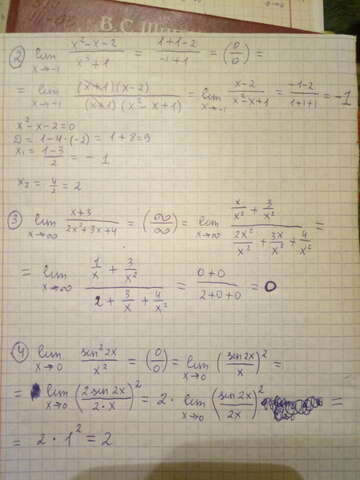 В.С. Ши
② lim x→-1 (x²-x-2)/(x³+1) = (1+1-2)/(-1+1) = (0/0) =
= lim x→-1 ((x+1)(x-2))/((x+1)(x²-x+1)) = lim x→-1 (x-2)/(x²-x+1) = (-1-2)/(1+1+1) = -1
x²-x-2=0
D = 1-4·(-2) = 1+8=9
x₁ = (1-3)/2 = -1
x₂ = 4/2 = 2
③ lim x→∞ (x+3)/(2x²+3x+4) = (∞/∞) = lim x→∞ (x/x² + 3/x²)/(2x²/x² + 3x/x² + 4/x²) =
= lim x→∞ (1/x + 3/x²)/(2 + 3/x + 4/x²) = (0+0)/(2+0+0) = 0
④ lim x→0 sin²2x/x² = (0/0) = lim x→0 (sin2x/x)² =
= lim x→0 (2sin2x/2·x)² = 2 · lim x→0 (sin2x/2x)² =
= 2 · 1² = 2